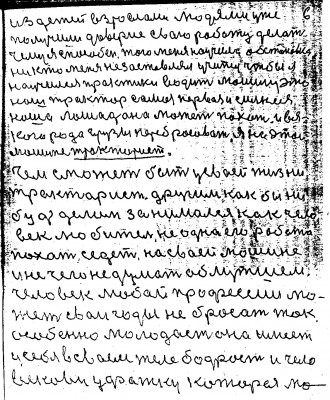 из детей взрослами людями уже 6
получили доверие сваю работу делат
чему я способен, того меня научила
ни кто меня не заставлял учитца чтобы я
научился практики водит машину это
наш трактор самая первая и сильнея
наша лошад она может пахат и вся
кого рода грузы перебрасоват. я на этой
машине тракторист.
Чем сможет быт у твоей жизни
тракторист. другим как бы ни
будь делим занимался как чело
век любител, не одна его работа
пахат, сеет, на сваей машине
и ничего не думат об лутшем.
человек любай професии мо-
жет сваи годы не бросат так
особенно молодаст она имеет
у себя в своем теле бодрост и чело
и уражку которая мо-